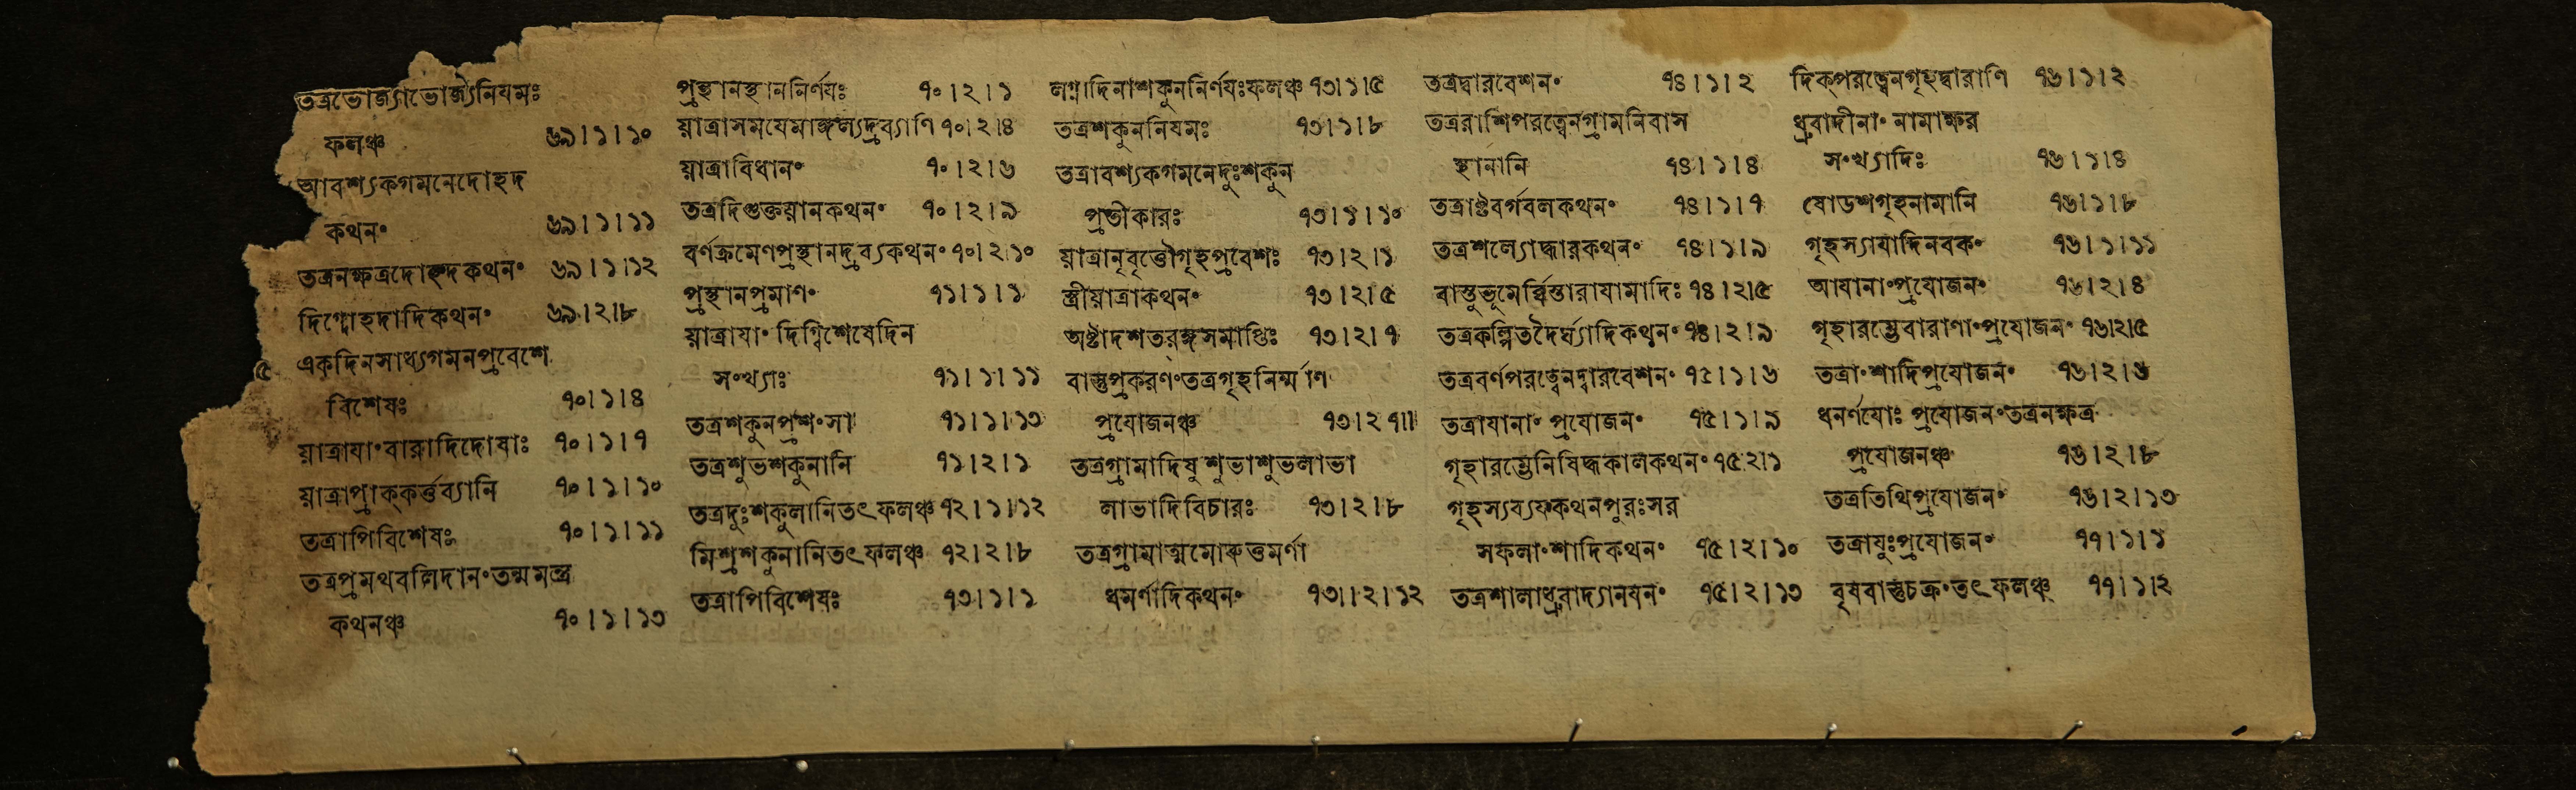 তত্রভোজ্যাভোজ্যনিযমঃ
ফলঞ্চ ৬৯।১।১০
আবশ্যকগমনেদোহদ
কথনং ৬৯।১।১১
তত্রনক্ষত্রদোহদকথনং ৬৯।১।১২
দিগ্দোহদাদিকথনং ৬৯।২।৮
৫ একদিনসাধ্যগমনপ্রবেশে
বিশেষঃ ৭০।১।৪
য়াত্রাযাংবারাদিদোষাঃ ৭০।১।৭
য়াত্রাপ্রাক্কর্ত্তব্যানি ৭০।১।১০
তত্রাপিবিশেষঃ ৭০।১।১১
তত্রপ্রমথবলিদানংতন্মমন্ত্র
কথনঞ্চ ৭০।১।১৩
প্রস্থানস্থাননির্ণযঃ ৭০।২।১
য়াত্রাসমযেমাঙ্গল্যদ্রব্যাণি ৭০।২।৪
য়াত্রাবিধানং ৭০।২।৬
তত্রদিগুক্তয়ানকথনং ৭০।২।৯
বর্ণক্রমেণপ্রস্থানদ্রব্যকথনং ৭০।২।১০
প্রস্থানপ্রমাণং ৭১।১।১
য়াত্রাযাং দিগ্বিশেষেদিন
সংখ্যাঃ ৭১।১।১১
তত্রশকুনপ্রশংসা ৭১।১।১৩
তত্রশুভশকুনানি ৭১।২।১
তত্রদুঃশকুলানিতৎফলঞ্চ ৭২।১।১২
মিশ্রশকুনানিতৎফলঞ্চ ৭২।২।৮
তত্রাপিবিশেষঃ ৭৩।১।১
লগ্নাদিনাশকুননির্ণযঃফলঞ্চ ৭৩।১।৫
তত্রশকুননিযমঃ ৭৩।১।৮
তত্রাবশ্যকগমনেদুঃশকুন
প্রতীকারঃ ৭৩।১।১০
য়াত্রানৃবৃত্তৌগৃহপ্রবেশঃ ৭৩।২।১
স্ত্রীয়াত্রাকথনং ৭৩।২।৫
অষ্টাদশতরঙ্গসমাপ্তিঃ ৭৩।২।৭
বাস্তুপ্রকরণংতত্রগৃহনির্ম্মাণ
প্রযোজনঞ্চ ৭৩।২ ৭॥
তত্রগ্রামাদিষু শুভাশুভলাভা
লাভাদিবিচারঃ ৭৩।২।৮
তত্রগ্রামাত্মমোরুত্তমর্ণা
ধমর্ণাদিকথনং ৭৩।২।১২
তত্রদ্বারবেশনং ৭৪।১।২
তত্ররাশিপরত্বেনগ্রামনিবাস
স্থানানি ৭৪।১।৪
তত্রাষ্টবর্গবলকথনং ৭৪।১।৭
তত্রশল্যোদ্ধারকথনং ৭৪।১।৯
বাস্তুভূমের্ব্বিস্তারাযামাদিঃ ৭৪।২।৫
তত্রকল্পিতদৈর্ঘ্যাদিকথনং ৭৪।২।৯
তত্রবর্ণপরত্বেনদ্বারবেশনং ৭৫।১।৬
তত্রাযানাং প্রযোজনং ৭৫।১।৯
গৃহারম্ভেনিষিদ্ধকালকথনং ৭৫।২।১
গৃহস্যব্যফকথনপুরঃসর
সফলাংশাদিকথনং ৭৫।২।১০
তত্রশালাধ্রুবাদ্যানযনং ৭৫।২।১৩
দিক্পরত্বেনগৃহদ্বারাণি ৭৬।১।২
ধ্রুবাদীনাং নামাক্ষর
সংখ্যাদিঃ ৭৬।১।৪
ষোডশগৃহনামানি ৭৬।১।৮
গৃহস্যাযাদিনবকং ৭৬।১।১১
আযানাংপ্রযোজনং ৭৬।২।৪
গৃহারম্ভেবারাণাংপ্রযোজনং ৭৬।২।৫
তত্রাংশাদিপ্রযোজনং ৭৬।২।৬
ধনর্ণযোঃ প্রযোজনংতত্রনক্ষত্র
প্রযোজনঞ্চ ৭৬।২।৮
তত্রতিথিপ্রযোজনং ৭৬।২।১৩
তত্রাযুঃপ্রযোজনং ৭৭।১।১
বৃষবাস্তুচক্রংতৎফলঞ্চ ৭৭।১।২